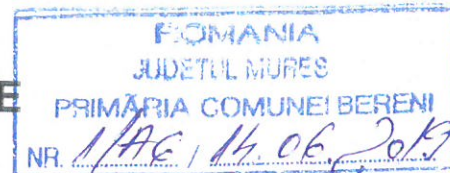 ROMANIA
JUDETUL MURES
E PRIMĂRIA COMUNEI BERENI
NR. 1/AE / 14. 06. 2019